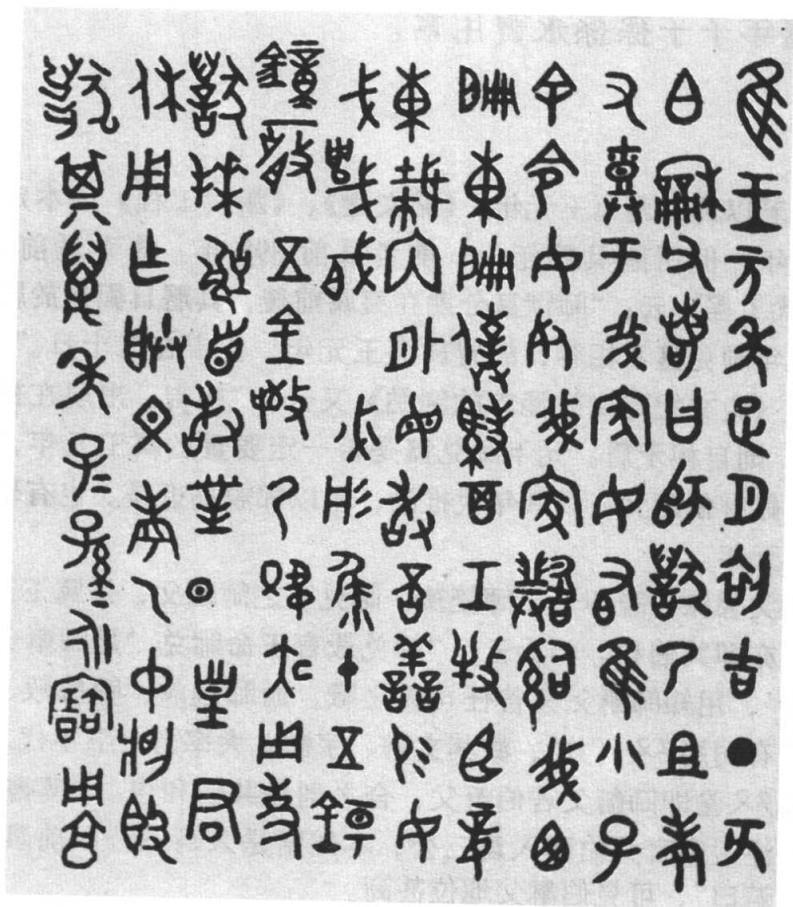 隹王元年正月初吉丁亥
白龢父若曰師獸乃且考
又于我家女有隹小子
余令女死我家𤔲我西
扁東扁僕馭百工牧臣妾
東裁内外毋敢否善易女
戈㦸必彤十五鍚
鐘一五金敬乃夙夜用事
獸拜首敢對揚皇君
休用乍朕文考乙中𣪘
獸其萬年子子孫孫永寶用享